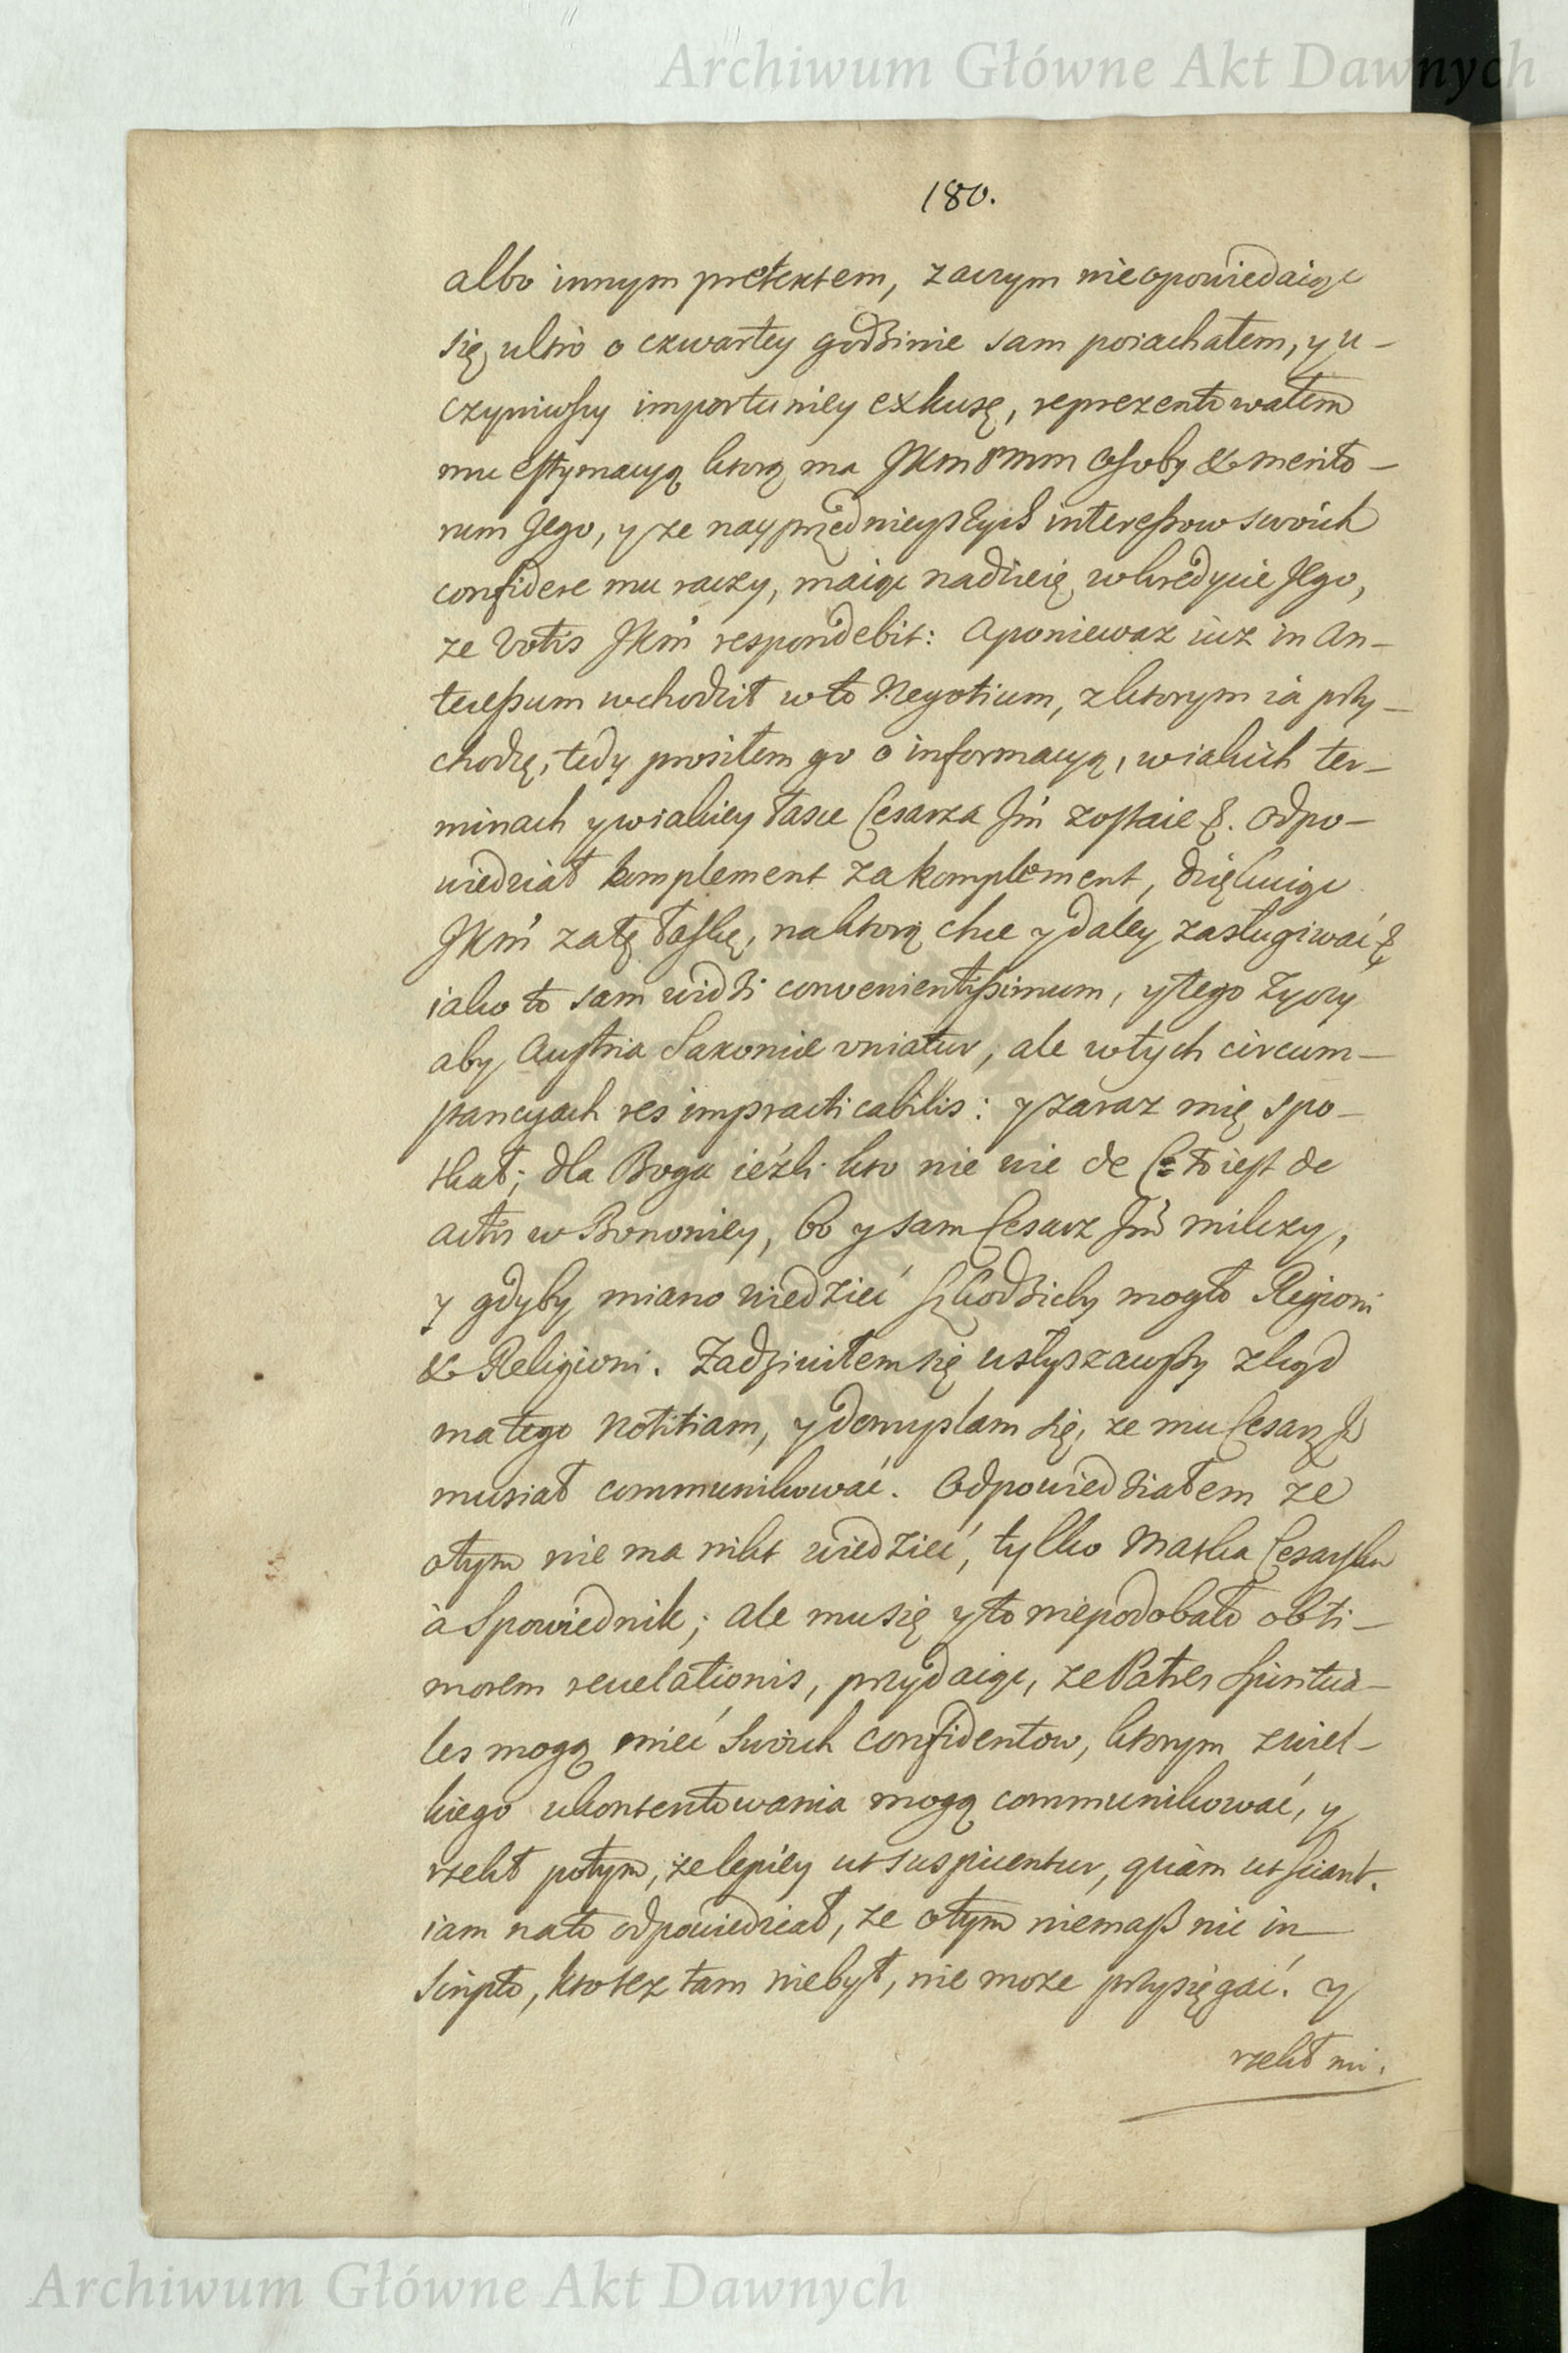 Archiwum Główne Akt Dawnych
180.
albo innym pretextem, zaczym nieopowiedaiąc
się, ultro o czwartey godzinie sam poiachałem, y u-
czyniwszy importuniey exkuzę, reprezentowałem
mu estymacyą ktorą ma JKm osoby & merito-
rum Jego, y ze nayprzednieyszych interessow swoich
confidere mu raczy, maiąc nadzieię w kredycie Jego,
ze Votis JKm respondebit: A poniewaz iuz in An-
tecessum wchodził w to Negotium, z ktorym ia przy-
chodzę, tedy prosiłem go o informacyą, w iakich ter-
minach y w iakiey łasce Cesarza Jm zostaie &. Odpo-
wiedział komplement za komplement, dziękuiąc
JKm za tę łaskę, na ktorą chce y daley zasługiwać &
iako to sam widzi convenientissimum, y tego zyczy
aby Austria Saxonie uniatur, ale w tych circum-
stancyach res impracticabilis: y zaraz mię spo-
tkał; dla Boga iezli kto nie wie de C= to iest de
actis w Bononiey, bo y sam Cesarz Jm milczy,
y gdyby miano wiedzieć szkodzicby mogło Regioni
& Religioni. Zadziwiłem się usłyszawszy zkąd
ma tego notitiam, y domyslam się, ze mu Cesarz J
musiał communikować. Odpowiedziałem ze
o tym nie ma nikt wiedzieć, tylko Matka Cesarska
à Spowiednik; ale mu się y to niepodobało ob ti-
morem revelationis, przydaiąc, ze Patres Spiritua-
les mogą mieć swoich confidentow, ktorym z wiel-
kiego ukontentowania mogą communikować, y
rzekł potym, ze lepiey ut suspicentur, quàm ut sciant.
iam na to odpowiedział, ze o tym niemasz nic in
Scripto, kto tez tam niebył, nie moze przysięgać. y
rzekł mi.
Archiwum Główne Akt Dawnych